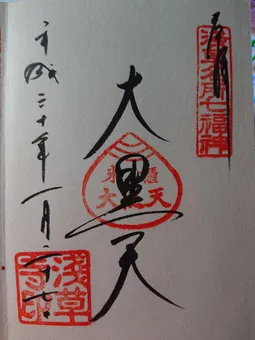 奉拝
浅草名所七福神
大黒天
平成三十年一月二十七日
浅草寺印